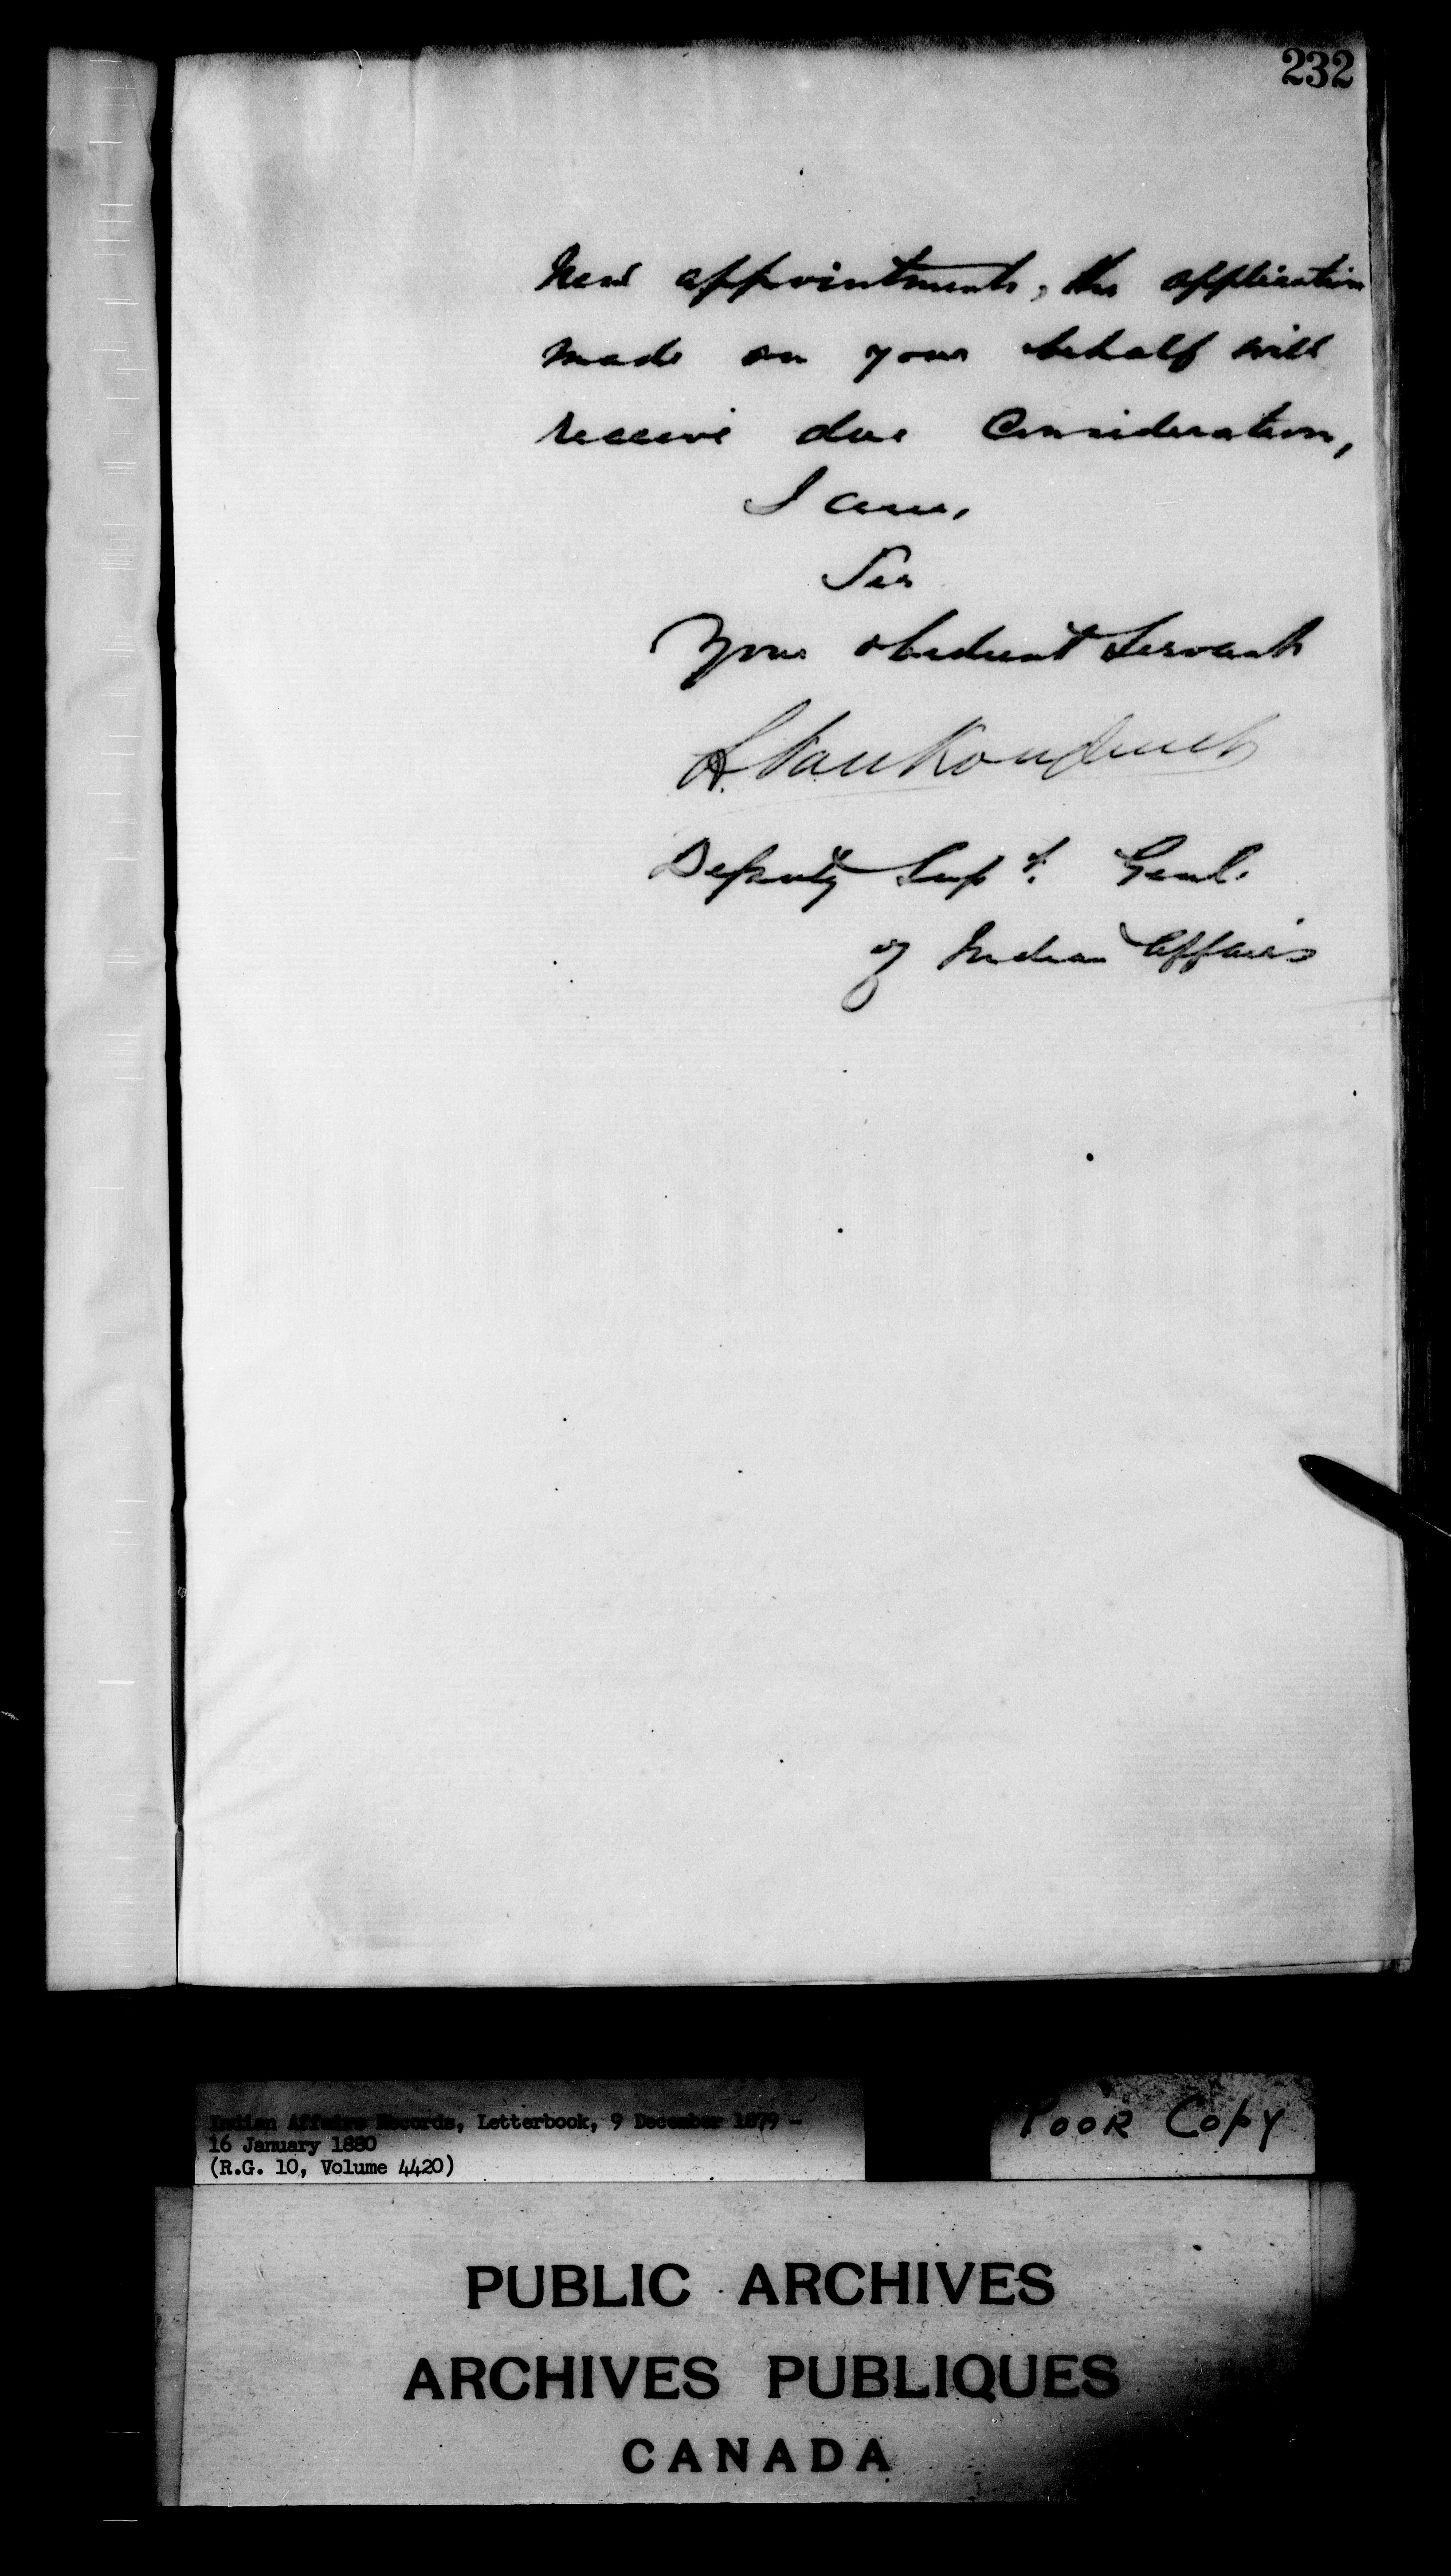 232
new appointments, the application
made on your behalf will
receive due Consideration,
I am,
Sir
Your obedient Servant
L. VanKoughnet
Deputy Supt. Genl.
of Indian Affairs
Indian Affairs Records, Letterbook, 9 December 1879 -
16 January 1880
(R.G. 10, Volume 4420)
POOR COPY
PUBLIC ARCHIVES
ARCHIVES PUBLIQUES
CANADA